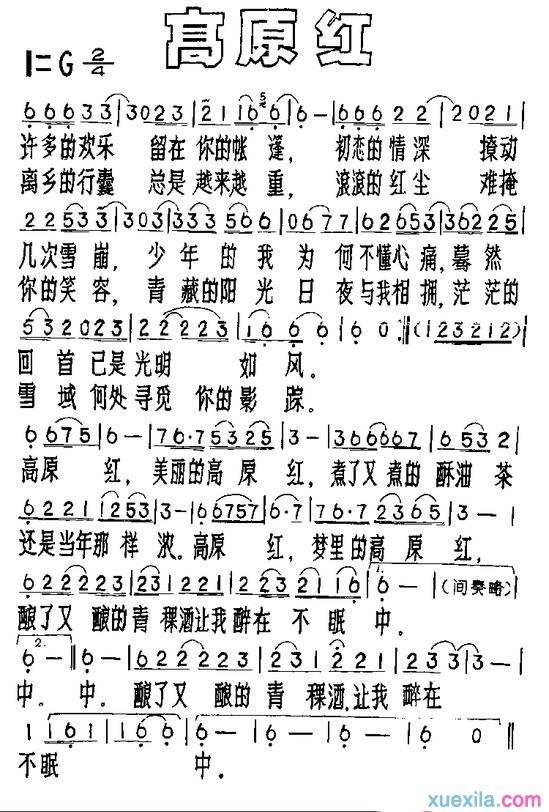 高原红
1=G 2/4
6 6 6 3 3 | 3 0 2 3 | 2 1 1 6 6 | 6 - | 6 6 6 2 2 | 2 0 2 1 |
许多的欢乐 留在你的帐篷， 初恋的情深 撩动
离乡的行囊 总是越来越重， 滚滚的红尘 难掩
2 2 5 3 3 | 3 0 3 | 3 3 5 6 6 | 0 6 7 7 | 6 2 6 5 3 | 3 6 2 2 5 |
几次雪崩，少年的我为何不懂心痛，蓦然
你的笑容，青藏的阳光日夜与我相拥，茫茫的
5 3 2 0 2 3 | 2 2 2 2 3 | 1 6 6 6 | 6 0 :‖ (1 2 3 2 1 2 |
回首已是光明 如风。
雪域何处寻觅 你的影踪。
6 6 7 5 | 6 - | 7 6 · 7 5 3 2 5 | 3 - | 3 6 6 6 6 7 | 6 5 3 2 |
高原 红，美丽的高原红，煮了又煮的酥油茶
6 2 2 1 1 2 5 3 | 3 - | 6 6 7 5 7 | 6 · 7 | 7 6 · 7 2 3 6 5 | 3 - |
还是当年那样浓。高原 红，梦里的高原红，
6 2 2 2 2 3 | 2 3 1 2 2 1 | 2 2 3 2 1 1 6 | 1. 6 - | (间奏略)
酿了又酿的青稞酒让我醉在不眠中。
2. 6 - ‖ 6 - | 6 2 2 2 2 3 | 2 3 1 2 2 1 | 2 3 3 | 3 - |
中。中。酿了又酿的青稞酒，让我醉在
1 1 6 1 | 1 6 6 | 6 - | 6 - | 6 - | 6 0 ‖
不眠 中。
xuexila.com